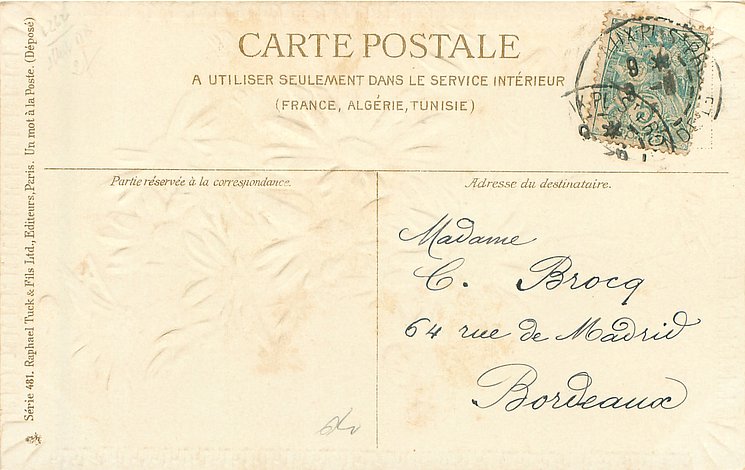 CARTE POSTALE
A UTILISER SEULEMENT DANS LE SERVICE INTÉRIEUR
(FRANCE, ALGÉRIE, TUNISIE)
Partie réservée à la correspondance.
Adresse du destinataire.
Madame
C. Brocq
64 rue de Madrid
Bordeaux
Série 481. Raphael Tuck & Fils Ltd., Editeurs, Paris. Un mot à la Poste. (Déposé)